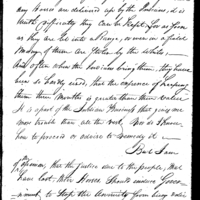 may Horses are delivered up by the Indians, it is
with difficulty they can be kept, for as soon
as they are let into a range, or even in a field
many of them are stolen by the
And often when the Indians bring them, they have
been so hardly used, that the expence of keeping
them three Months is greater than their value
It is a part of the Indian Business that gives me
more trouble than all the rest. Nor do I know
how to proceed or advise to remedy it —
But I am
of opinion, that the justice due to the people, that
have lost their Horses should induce Govern-
ment, to stop the Annuity from every nation